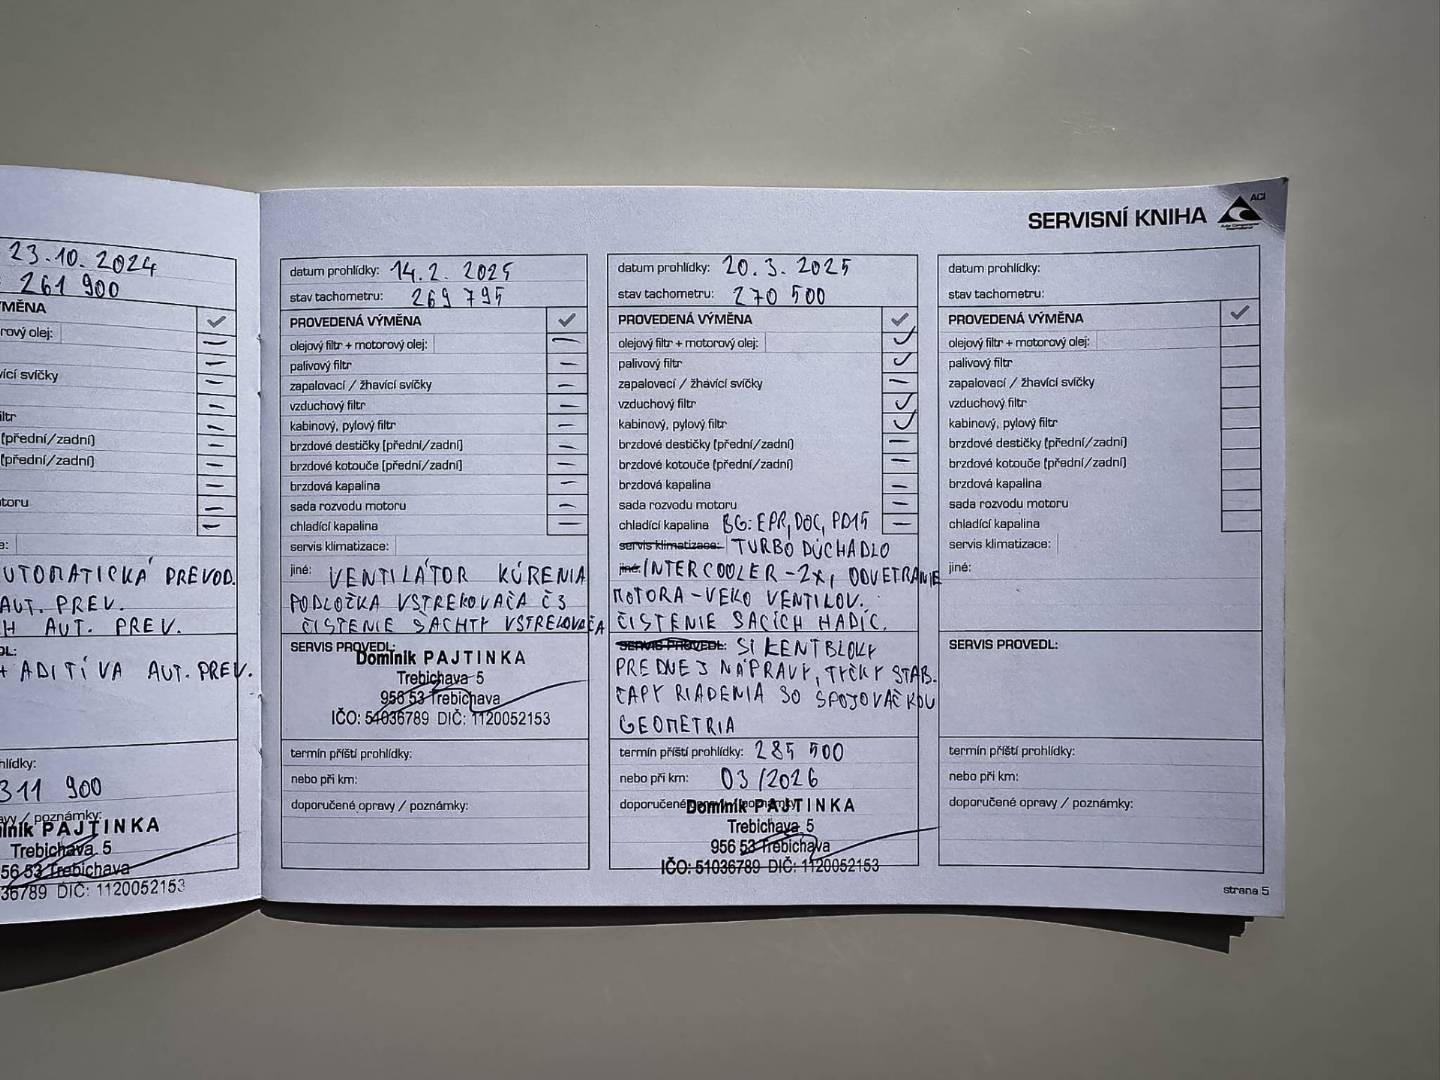 23.10.2024
261 900
ÝMĚNA
rový olej:
vící svíčky
iltr
(přední/zadní)
(přední/zadní)
otoru
e:
UTOMATICKÁ PREVOD.
AUT. PREV.
H AUT. PREV.
DL:
+ ADITÍVA AUT. PREV.
hlídky:
311 900
avy / poznámky:
inik PAJTINKA
Trebichava 5
56 53 Trebichava
36789 DIČ: 1120052153
datum prohlídky: 14.2. 2025
stav tachometru: 269 795
PROVEDENÁ VÝMĚNA
olejový filtr + motorový olej: –
palivový filtr –
zapalovací / žhavící svíčky –
vzduchový filtr –
kabinový, pylový filtr –
brzdové destičky (přední/zadní) –
brzdové kotouče (přední/zadní) –
brzdová kapalina –
sada rozvodu motoru –
chladící kapalina –
servis klimatizace:
jiné: VENTILÁTOR KÚRENIA
PODLOŽKA VSTREKOVAČA Č3
ČISTENIE ŠACHTY VSTREKOVAČA
SERVIS PROVEDL:
Dominik PAJTINKA
Trebichava 5
956 53 Trebichava
IČO: 51036789 DIČ: 1120052153
termín příští prohlídky:
nebo při km:
doporučené opravy / poznámky:
SERVISNÍ KNIHA
ACI
datum prohlídky: 20.3.2025
stav tachometru: 270 500
PROVEDENÁ VÝMĚNA ✓
olejový filtr + motorový olej: ✓
palivový filtr ✓
zapalovací / žhavící svíčky –
vzduchový filtr ✓
kabinový, pylový filtr ✓
brzdové destičky (přední/zadní) –
brzdové kotouče (přední/zadní) –
brzdová kapalina –
sada rozvodu motoru –
chladící kapalina BG: EPR, DOC, PD15 –
servis klimatizace: TURBO DÚCHADLO
jiné: INTERCOOLER – 2x, ODVETRANIE
MOTORA – VEKO VENTILOV.
ČISTENIE SACÍCH HADÍC.
SERVIS PROVEDL: SILENTBLOKY
PREDNEJ NÁPRAVY, TYČKY STAB.
ČAPY RIADENIA SO SPOJOVAČKOU
GEOMETRIA
termín příští prohlídky: 285 500
nebo při km: 03/2026
doporučené opravy / poznámky:
Dominik PAJTINKA
Trebichava 5
956 53 Trebichava
IČO: 51036789 DIČ: 1120052153
datum prohlídky:
stav tachometru:
PROVEDENÁ VÝMĚNA ✓
olejový filtr + motorový olej:
palivový filtr
zapalovací / žhavící svíčky
vzduchový filtr
kabinový, pylový filtr
brzdové destičky (přední/zadní)
brzdové kotouče (přední/zadní)
brzdová kapalina
sada rozvodu motoru
chladící kapalina
servis klimatizace:
jiné:
SERVIS PROVEDL:
termín příští prohlídky:
nebo při km:
doporučené opravy / poznámky:
strana 5